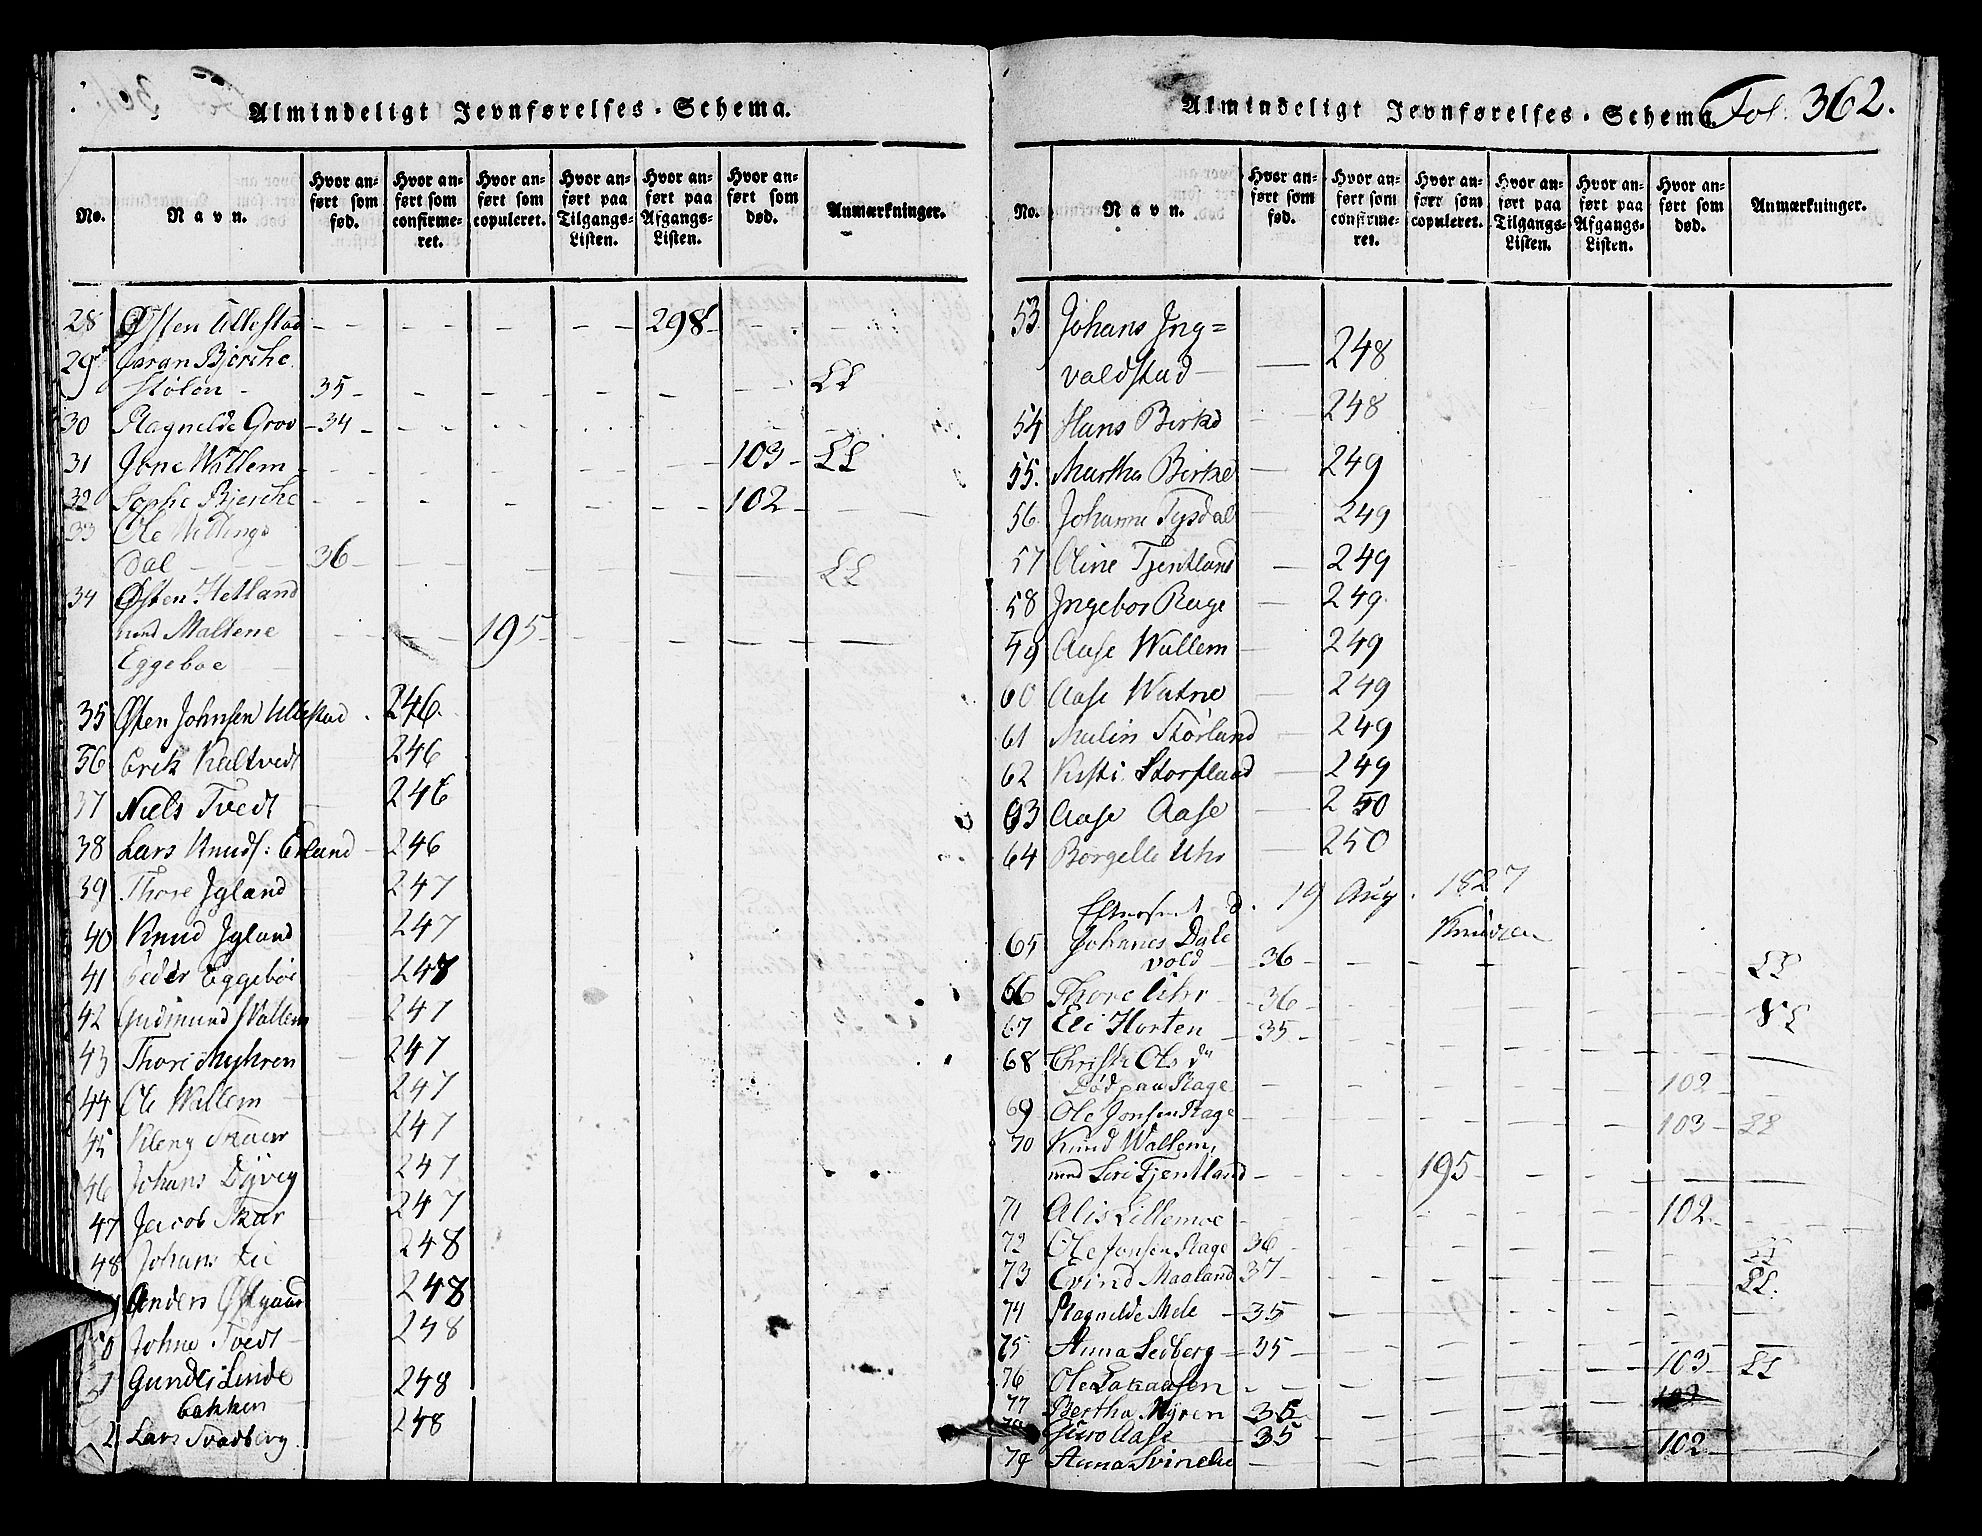 Almindeligt Jevnførelses-Schema.
No. Navn. Hvor anført som fød. Hvor anført som confirmeret. Hvor anført som copuleret. Hvor anført paa Tilgangs-Listen. Hvor anført paa Afgangs-Listen. Hvor anført som død. Anmærkninger.
28 Østen Ullestad 298
29 Bjerche
Støløn 35 LL
30 Ragnelde Grov 34
31 Jone Wallem 103 LL
32 Sophe Bjerche 102
33 Ole
dal 36 LL
34 Østen Hetland
med Maltene 195
Eggeboe
35 Østen Johnsen Ullestad 246
36 Erik Kaltvedt 246
37 Niels Tvedt 246
38 Lars Knuds: Erland 246
39 Thore Jgland 247
40 Knud Jgland 247
41 Peder Eggeböe 247
42 Gudmund Wallem 247
43 Thore Myhren 247
44 Ole Wallem 247
45 Kleng 247
46 Johans Dyveg 247
47 Jacob Skar 247
48 Johans Lie 248
Anders Østgaard 248
0 Johne Tvedt 248
Gundei Linde
bakken 248
2 Lars Svadberg 248
Almindeligt Jevnførelses-Schema. Fol. 362.
No. Navn. Hvor anført som fød. Hvor anført som confirmeret. Hvor anført som copuleret. Hvor anført paa Tilgangs-Listen. Hvor anført paa Afgangs-Listen. Hvor anført som død. Anmærkninger.
53 Johans Jng=
valdstad 248
54 Hans Birke 248
55. Martha Birke 249
56 Johanne Tysdal 249
57 Oline Tjentland 249
58 Jngebor Rage 249
59 Aase Wallem 249
60 Aase Watne 249
61 Malin Størland 249
62 Kisti Storfland 249
63 Aase Aase 250
64 Borgelle Uhr 250
d. 19 Aug. 1827
Knudsen
65 Johanes Dale
vold 36 LL
66 Thore Uhr 36
67 Eli Horten 35
68 Christi Ols dr
Død paa Rage 102
69 Ole Jonsen Rage 103 LL
70 Knud Wallem,
med Siri Tjentland 195
71 Alis Lillemoe 102
72 Ole Jonsen Rage 36
73 Evind Maaland 37 LL.
74 Ragnelde Mele 35
75 Anna Sedberg 35
76 Ole 103 LL
77 Bertha Myren 35
78 Guro Aase 35
79 Anna Svinelie 102